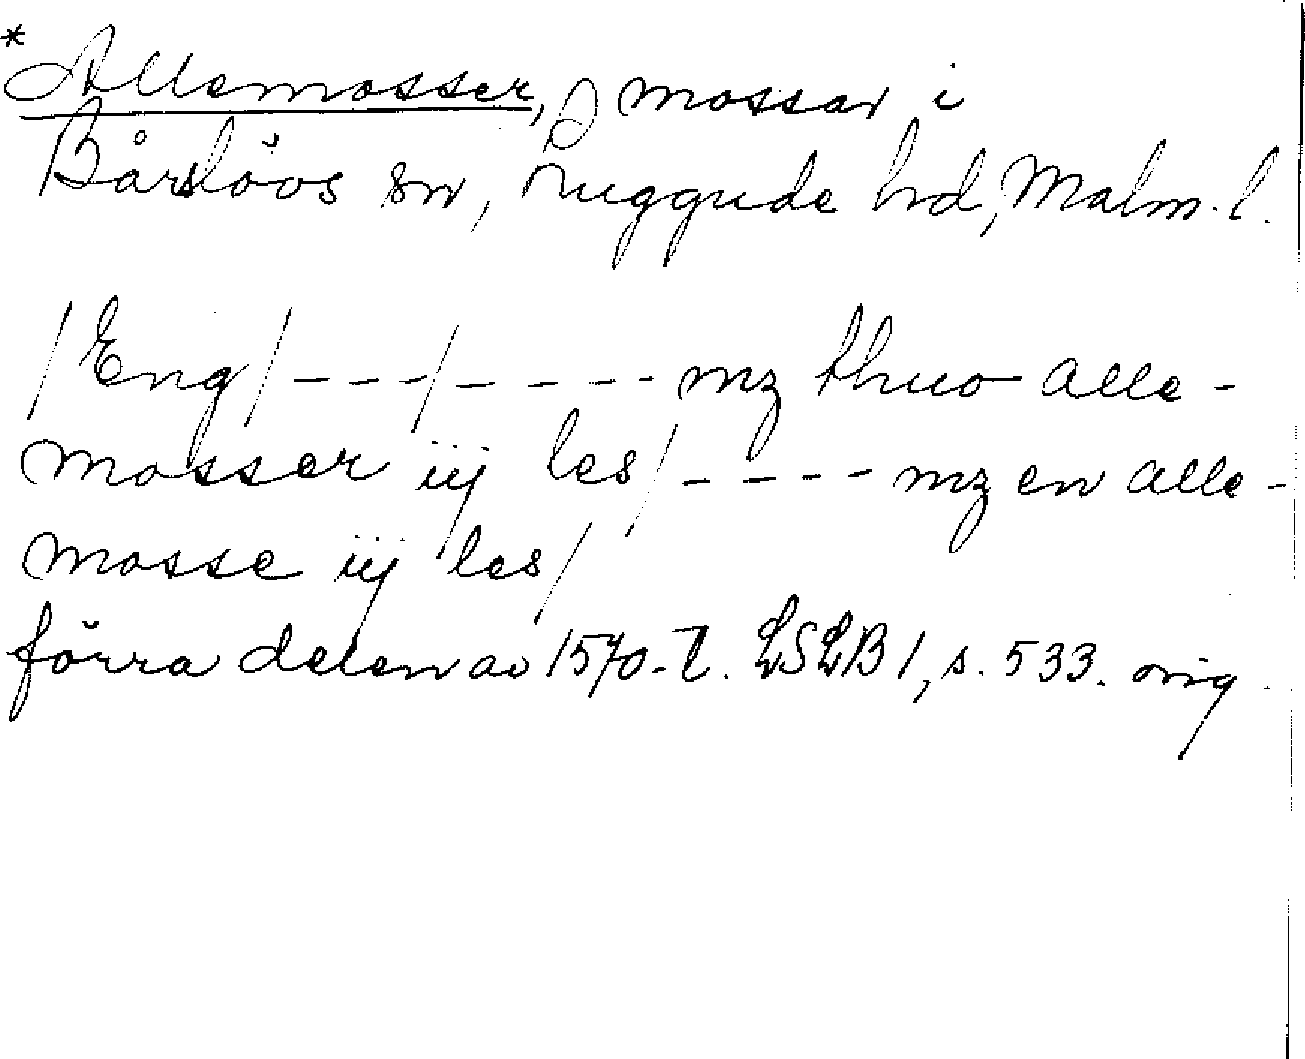 *Allemosser, mossar i
Bårslövs sn, Luggude hd, Malm. l.
/Eng/ - - - / - - - - - mz thuo alle-
mosser iij les / - - - - mz en alle-
mosse iij les /
förra delen av 1570-t. LSLB 1, s. 533. orig.